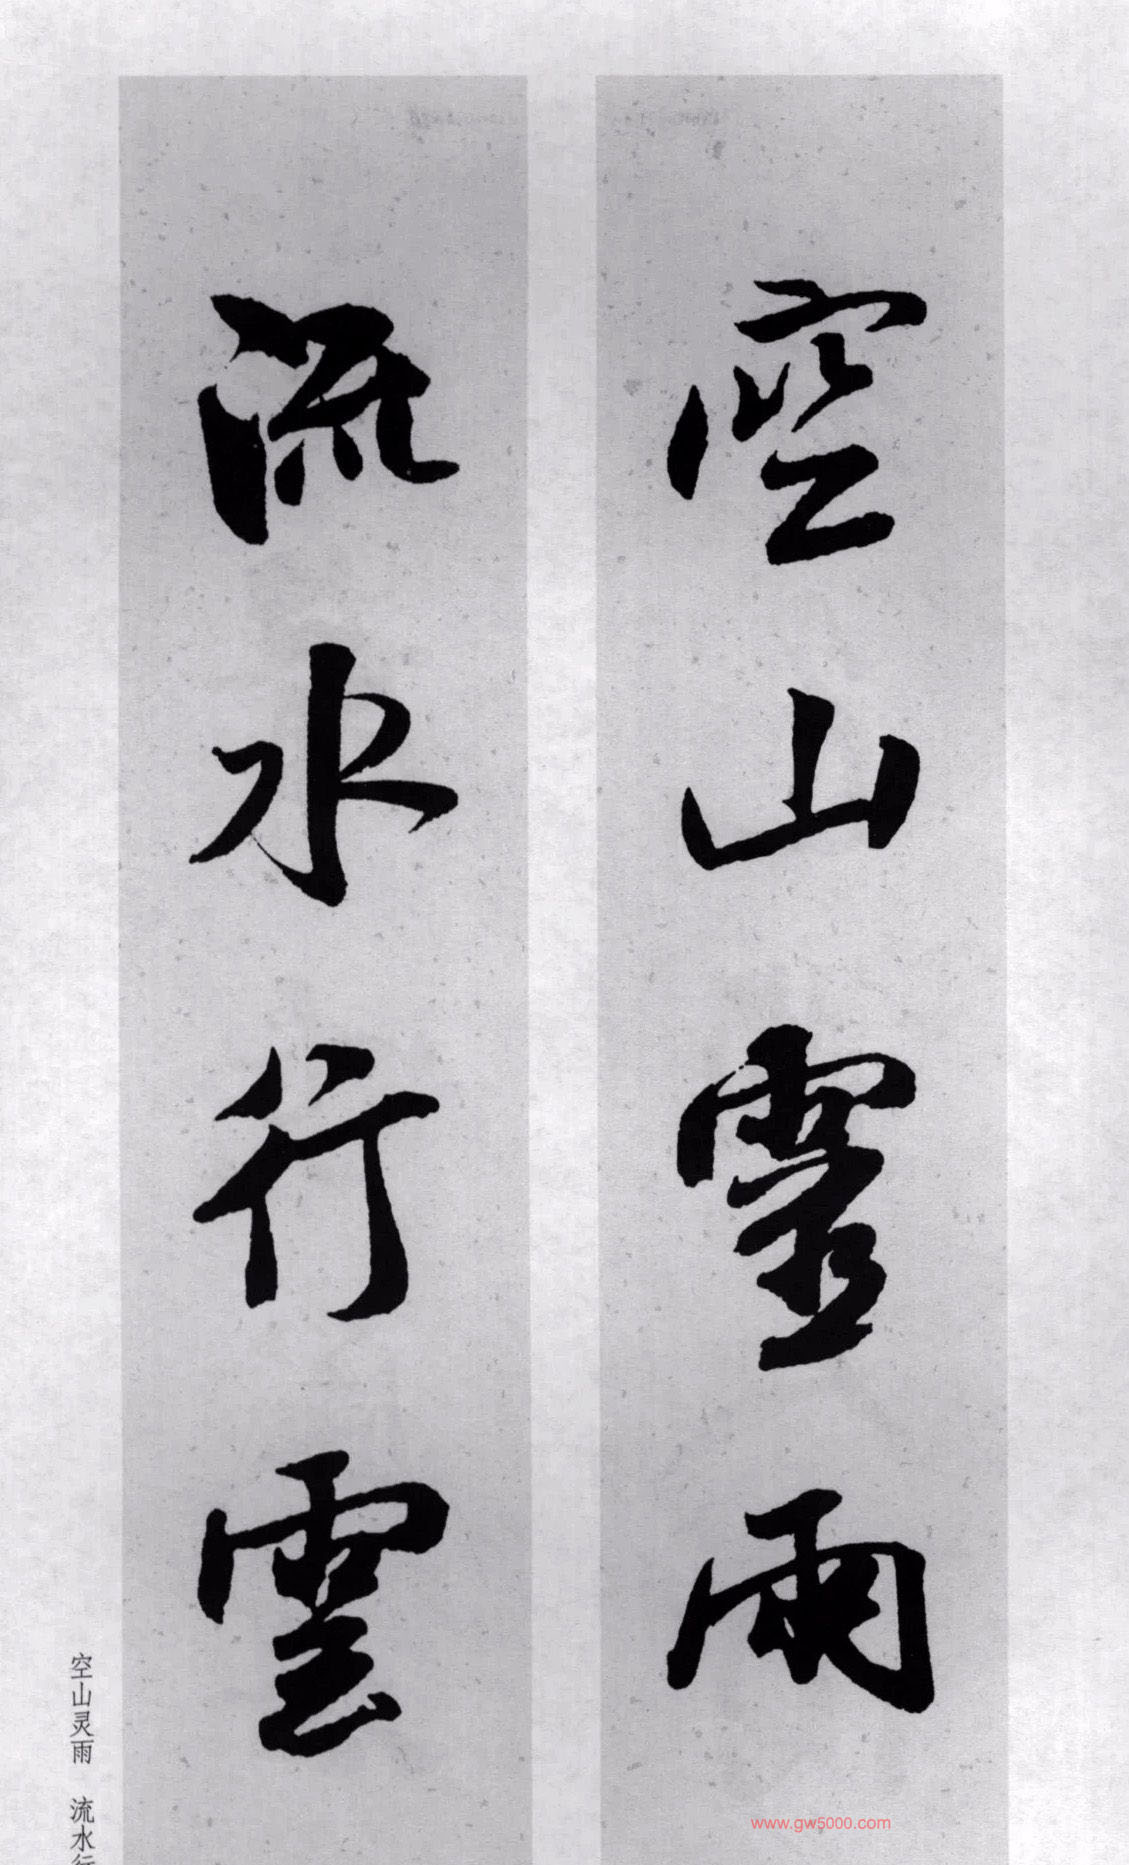 空山靈雨
流水行雲
空山灵雨 流水行
www.gw5000.com